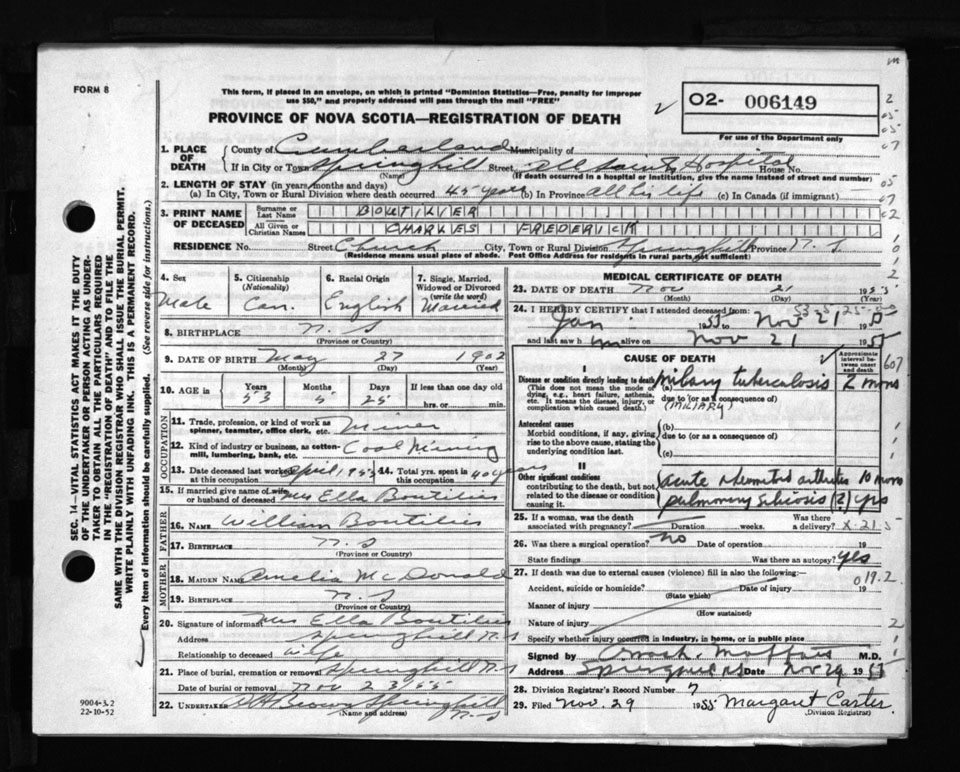 FORM 8
This form, if placed in an envelope, on which is printed "Dominion Statistics—Free, penalty for improper
use $50," and properly addressed will pass through the mail "FREE"
PROVINCE OF NOVA SCOTIA—REGISTRATION OF DEATH
O2- 006149
For use of the Department only
1. PLACE OF DEATH
County of Cumberland Municipality of
If in City or Town Springhill Street All Saints Hospital House No.
(Name) (If death occurred in a hospital or institution, give the name instead of street and number)
2. LENGTH OF STAY (in years, months and days)
(a) In City, Town or Rural Division where death occurred 45 years (b) In Province all his life (c) In Canada (if immigrant)
3. PRINT NAME OF DECEASED
Surname or Last Name BOUTILIER
All Given or Christian Names CHARLES FREDERICK
RESIDENCE No. Street Church City, Town or Rural Division Springhill Province N.S
(Residence means usual place of abode. Post Office Address for residents in rural parts not sufficient)
4. Sex Male
5. Citizenship (Nationality) Can.
6. Racial Origin English
7. Single, Married, Widowed or Divorced (write the word) Married
8. BIRTHPLACE N.S
(Province or Country)
9. DATE OF BIRTH May 27 1902
(Month) (Day) (Year)
10. AGE in Years 53 Months 5 Days 25 If less than one day old
hrs. or min.
OCCUPATION
11. Trade, profession, or kind of work as spinner, teamster, office clerk, etc. Miner
12. Kind of industry or business, as cotton-mill, lumbering, bank, etc. Coal Mining
13. Date deceased last worked at this occupation April 1953 14. Total yrs. spent in this occupation 40 years
15. If married give name of wife or husband of deceased Mrs Ella Boutilier
FATHER
16. NAME William Boutilier
17. BIRTHPLACE N.S
(Province or Country)
MOTHER
18. MAIDEN NAME Amelia McDonald
19. BIRTHPLACE N.S
(Province or Country)
20. Signature of informant Mrs Ella Boutilier
Address Springhill N.S
Relationship to deceased wife
21. Place of burial, cremation or removal Springhill N.S
Date of burial or removal Nov 23/55
22. UNDERTAKER Brown Springhill N.S
(Name and address)
9004-3.2
22-10-52
SEC. 14—VITAL STATISTICS ACT MAKES IT THE DUTY
OF THE UNDERTAKER OR PERSON ACTING AS UNDER-
TAKER TO OBTAIN ALL THE PARTICULARS REQUIRED
IN THE "REGISTRATION OF DEATH" AND TO FILE THE
SAME WITH THE DIVISION REGISTRAR WHO SHALL ISSUE THE BURIAL PERMIT.
WRITE PLAINLY WITH UNFADING INK. THIS IS A PERMANENT RECORD.
Every item of information should be carefully supplied. (See reverse side for instructions.)
MEDICAL CERTIFICATE OF DEATH
23. DATE OF DEATH Nov 21 1955
(Month) (Day) (Year)
24. I HEREBY CERTIFY that I attended deceased from:
Jan 1955 to Nov 21 1955
and last saw him alive on Nov 21 1955
CAUSE OF DEATH
Approximate interval between onset and death
607
I
Disease or condition directly leading to death
(This does not mean the mode of dying, e.g., heart failure, asthenia, etc. It means the disease, injury, or complication which caused death.)
(a) miliary tuberculosis 2 mons
due to (or as a consequence of)
(MILIARY)
Antecedent causes
Morbid conditions, if any, giving rise to the above cause, stating the underlying condition last.
(b)
due to (or as a consequence of)
(c)
II
Other significant conditions contributing to the death, but not related to the disease or condition causing it.
acute rheumatoid arthritis 10 mons
pulmonary silicosis ? yrs
25. If a woman, was the death associated with pregnancy? Duration weeks. Was there a delivery? X-21-5
26. Was there a surgical operation? No Date of operation 19
State findings Was there an autopsy? yes
27. If death was due to external causes (violence) fill in also the following:—
019.2
Accident, suicide or homicide? Date of injury 19
(State which)
Manner of injury
(How sustained)
Nature of injury
Specify whether injury occurred in industry, in home, or in public place
Signed by M.D.
Address Springhill NS Date Nov 29 1955
28. Division Registrar's Record Number 7
29. Filed Nov. 29 1955 Margaret Carter
(Division Registrar)